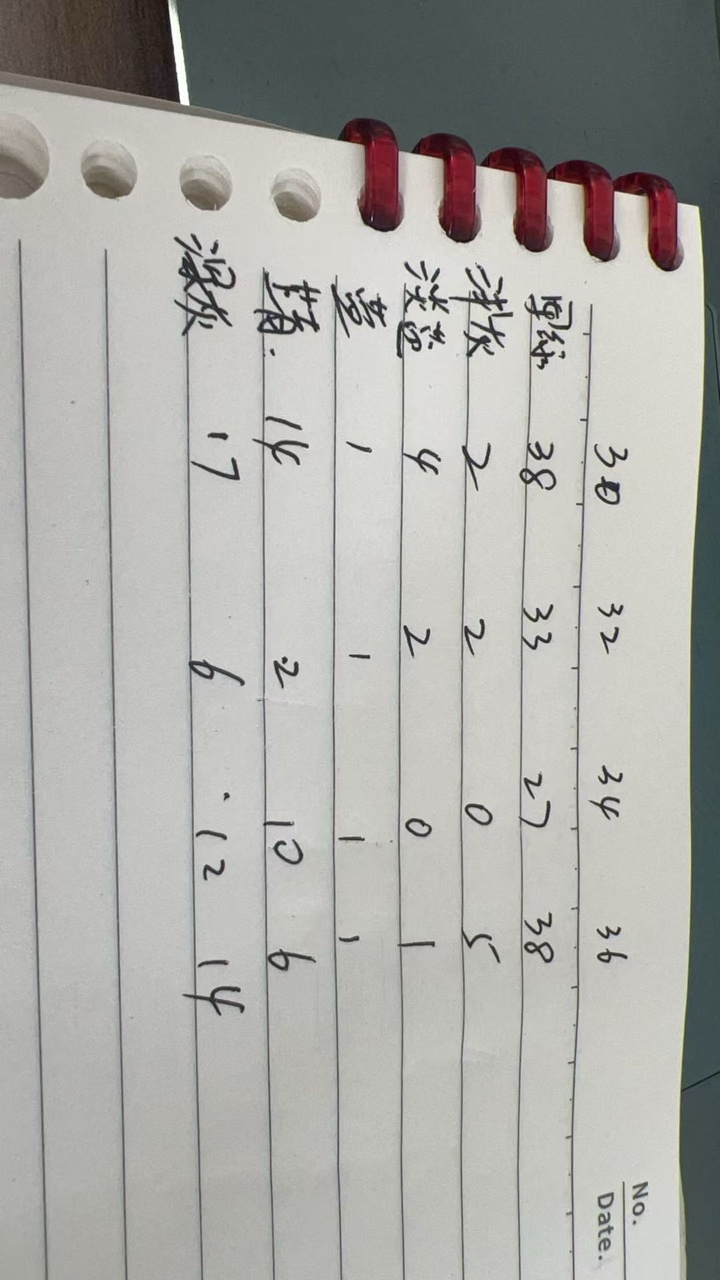 No.
Date.
30 32 34 36
38 33 27 38
浅灰 2 2 0 5
4 2 0 1
1 1 1 1
14 2 10 6
深灰 17 6 12 14